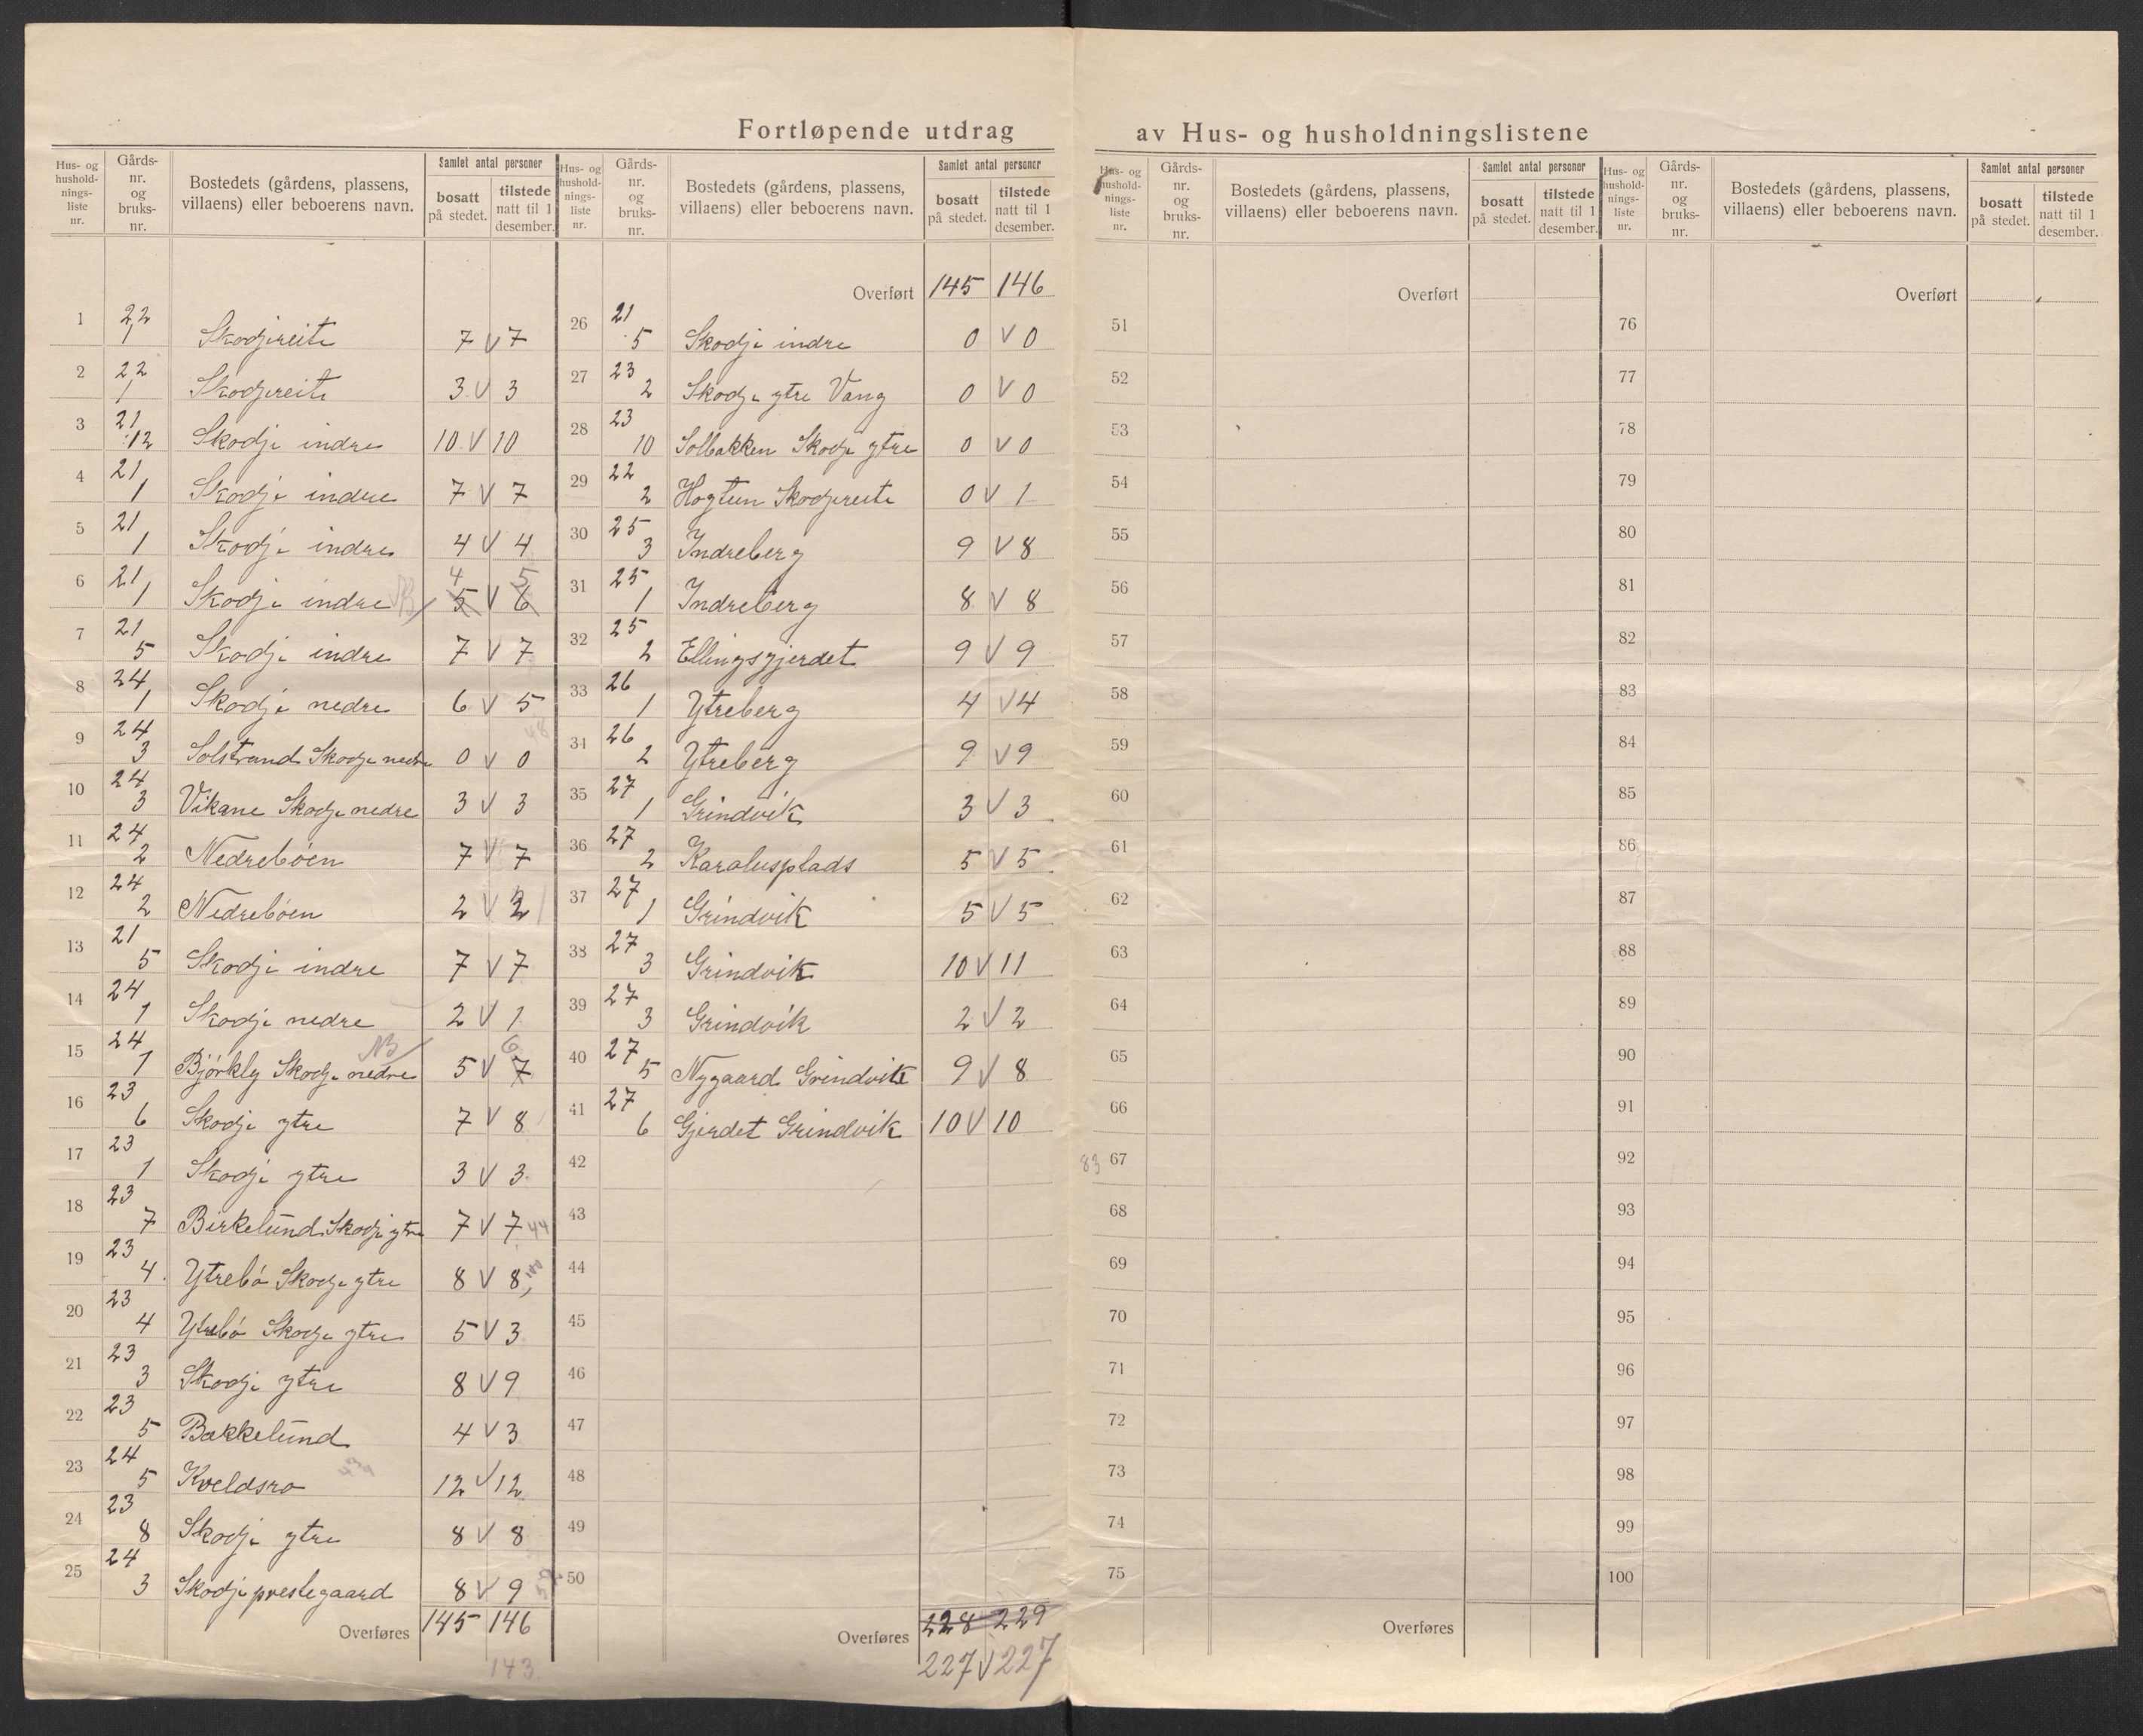 Fortløpende utdrag av Hus- og husholdningslistene
Hus- og husholdningsliste nr. | Gårds-nr. og bruks-nr. | Bostedets (gårdens, plassens, villaens) eller beboerens navn. | Samlet antal personer | bosatt på stedet. | tilstede natt til 1 desember.
1 22 1 Skodjereite 7 V 7
2 22 1 Skodjereite 3 V 3
3 21 12 Skodje indre 10 V 10
4 21 1 Skodje indre 7 V 7
5 21 1 Skodje indre 4 V 4
6 21 1 Skodje indre NB 4 5 V 5 6
7 21 5 Skodje indre 7 V 7
8 24 1 Skodje nedre 6 V 5
48
9 24 3 Solstrand Skodje nedre 0 V 0
10 24 3 Vikane Skodje nedre 3 V 3
11 24 2 Nedrebøen 7 V 7
12 24 2 Nedrebøen 2 V 2
13 21 5 Skodje indre 7 V 7
14 24 1 Skodje nedre 2 V 1
15 24 1 Bjørkly Skodje nedre NB 5 V 6 7
16 23 6 Skodje ytre 7 V 8
17 23 1 Skodje ytre 3 V 3
18 23 7 Birkelund Skodje ytre 7 V 7 44
19 23 4 Ytrebø Skodje ytre 8 V 8
20 23 4 Ytrebø Skodje ytre 5 V 3
21 23 3 Skodje ytre 8 V 9
22 23 5 Bakkelund 4 V 3
23 24 5 Kveldsro 12 V 12
24 23 8 Skodje ytre 8 V 8
25 24 3 Skodje prestegaard 8 V 9
Overføres 145 146
143
Hus- og husholdningsliste nr. | Gårds-nr. og bruks-nr. | Bostedets (gårdens, plassens, villaens) eller beboerens navn. | Samlet antal personer | bosatt på stedet. | tilstede natt til 1 desember.
Overført 145 146
26 21 5 Skodje indre 0 V 0
27 23 2 Skodje ytre Vang 0 V 0
28 23 10 Solbakken Skodje ytre 0 V 0
29 22 2 Hogtun Skodjereite 0 V 1
30 25 3 Indreberg 9 V 8
31 25 1 Indreberg 8 V 8
32 25 2 Ellingsgjerdet 9 V 9
33 26 1 Ytreberg 4 V 4
34 26 2 Ytreberg 9 V 9
35 27 1 Grindvik 3 V 3
36 27 2 Karolusplads 5 V 5
37 27 1 Grindvik 5 V 5
38 27 3 Grindvik 10 V 11
39 27 3 Grindvik 2 V 2
40 27 5 Nygaard Grindvik 9 V 8
41 27 6 Gjerdet Grindvik 10 V 10
42
43
44
45
46
47
48
49
50
Overføres 228 229
227 V 227
Hus- og husholdningsliste nr. | Gårds-nr. og bruks-nr. | Bostedets (gårdens, plassens, villaens) eller beboerens navn. | Samlet antal personer | bosatt på stedet. | tilstede natt til 1 desember.
Overført
51
52
53
54
55
56
57
58
59
60
61
62
63
64
65
66
83 67
68
69
70
71
72
73
74
75
Overføres
Hus- og husholdningsliste nr. | Gårds-nr. og bruks-nr. | Bostedets (gårdens, plassens, villaens) eller beboerens navn. | Samlet antal personer | bosatt på stedet. | tilstede natt til 1 desember.
Overført
76
77
78
79
80
81
82
83
84
85
86
87
88
89
90
91
92
93
94
95
96
97
98
99
100